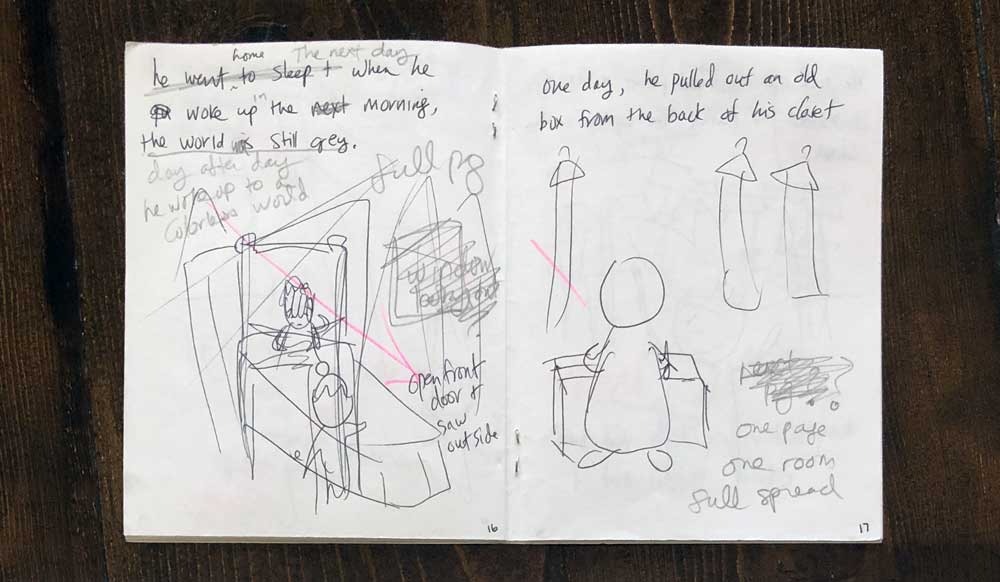 home The next day
he went to sleep + when he
woke up in the next morning,
the world was still grey.
day after day
he woke up to a
colorless world
full pg
window
open front
door +
saw
outside
16
one day, he pulled out an old
box from the back of his closet
one page
one room
full spread
17